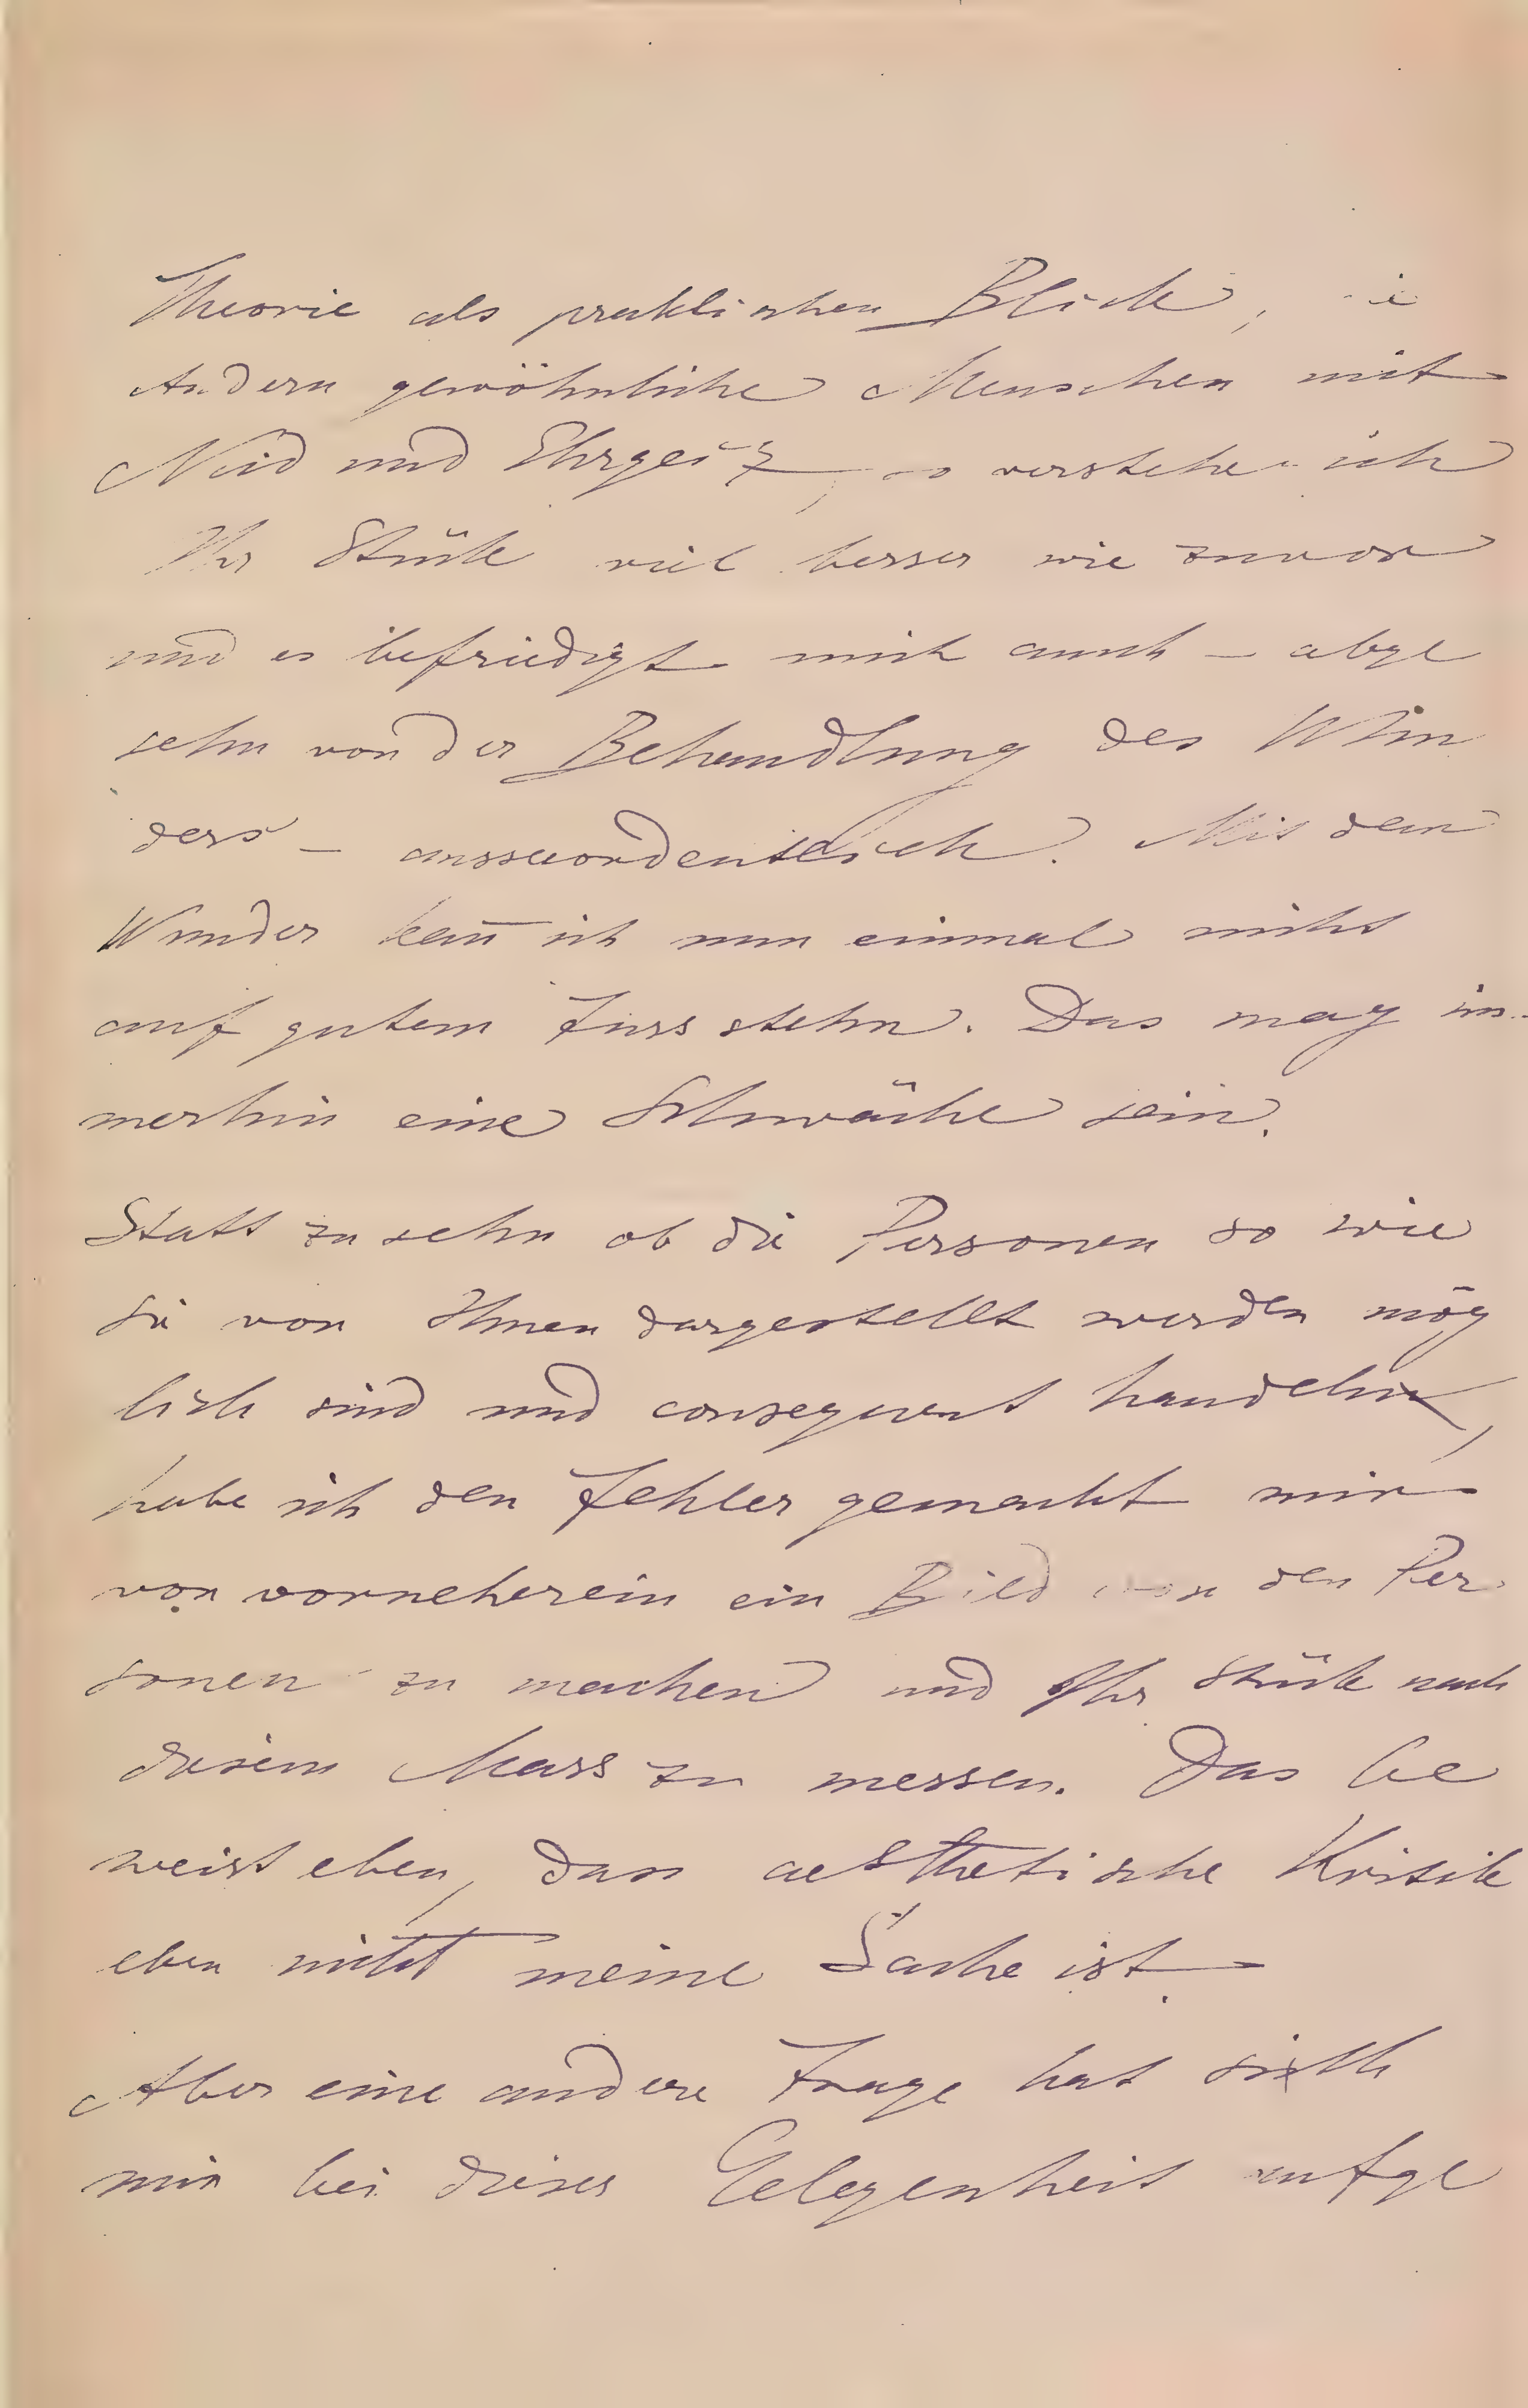 Theorie als praktischen Blick, die
Andern gewöhnliche Menschen mit
Neid und Ehrgeiz, so verstehe ich
Ihr Stück viel besser wie zuvor
und es befriedigt mich auch – abge
sehn von der Behandlung des Wun
ders – ausserordentlich. Mit dem
Wunder kan̄ ich nun einmal nicht
auf gutem Fuss stehn. Das mag im-
merhin eine Schwäche sein.
Statt zu sehn ob die Personen so wie
Sie von Ihnen dargestellt werden mög
lich sind und consequent handeln,
habe ich den Fehler gemacht mir
von vorneherein ein Bild von den Per
sonen zu machen und Ihr Stück nach
diesem Mass zu messen. Das be
weist eben, dass aesthetische Kritik
eben nicht meine Sache ist.
Aber eine andere Frage hat sich
mir bei dieser Gelegenheit aufge